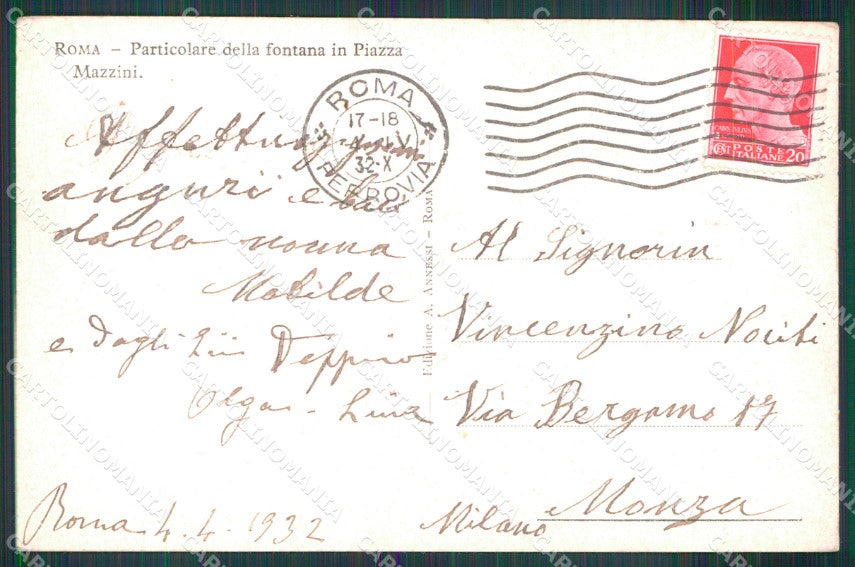 ROMA – Particolare della fontana in Piazza
Mazzini.
ROMA
17-18
IV
32-X
FERROVIA
POSTE
ITALIANE
CENT 20
Affettuosissimi
auguri e baci
dalla nonna
Matilde
e dagli zii Peppino
Olga - Lina
Roma 4.4.1932
Edizione A. Annessi - Roma
Al Signorin
Vincenzino Nociti
Via Bergamo 17
Monza
Milano
CARTOLINOMANIA